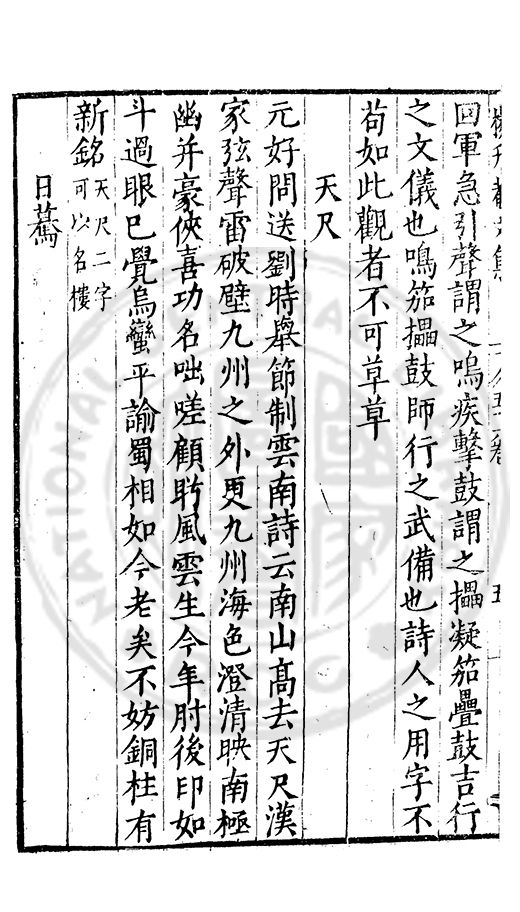 回軍急引聲謂之鳴疾擊鼓謂之攂凝笳疊鼓吉行
之文儀也鳴笳攂鼓師行之武備也詩人之用字不
苟如此觀者不可草草
天尺
元好問送劉時舉節制雲南詩云南山髙去天尺漢
家弦聲雷破壁九州之外更九州海色澄清映南極
幽并豪俠喜功名咄嗟顧盻風雲生今年肘後印如
斗過眼已覺烏蠻平諭蜀相如今老矣不妨銅柱有
新銘天尺二字
可以名樓
日薵